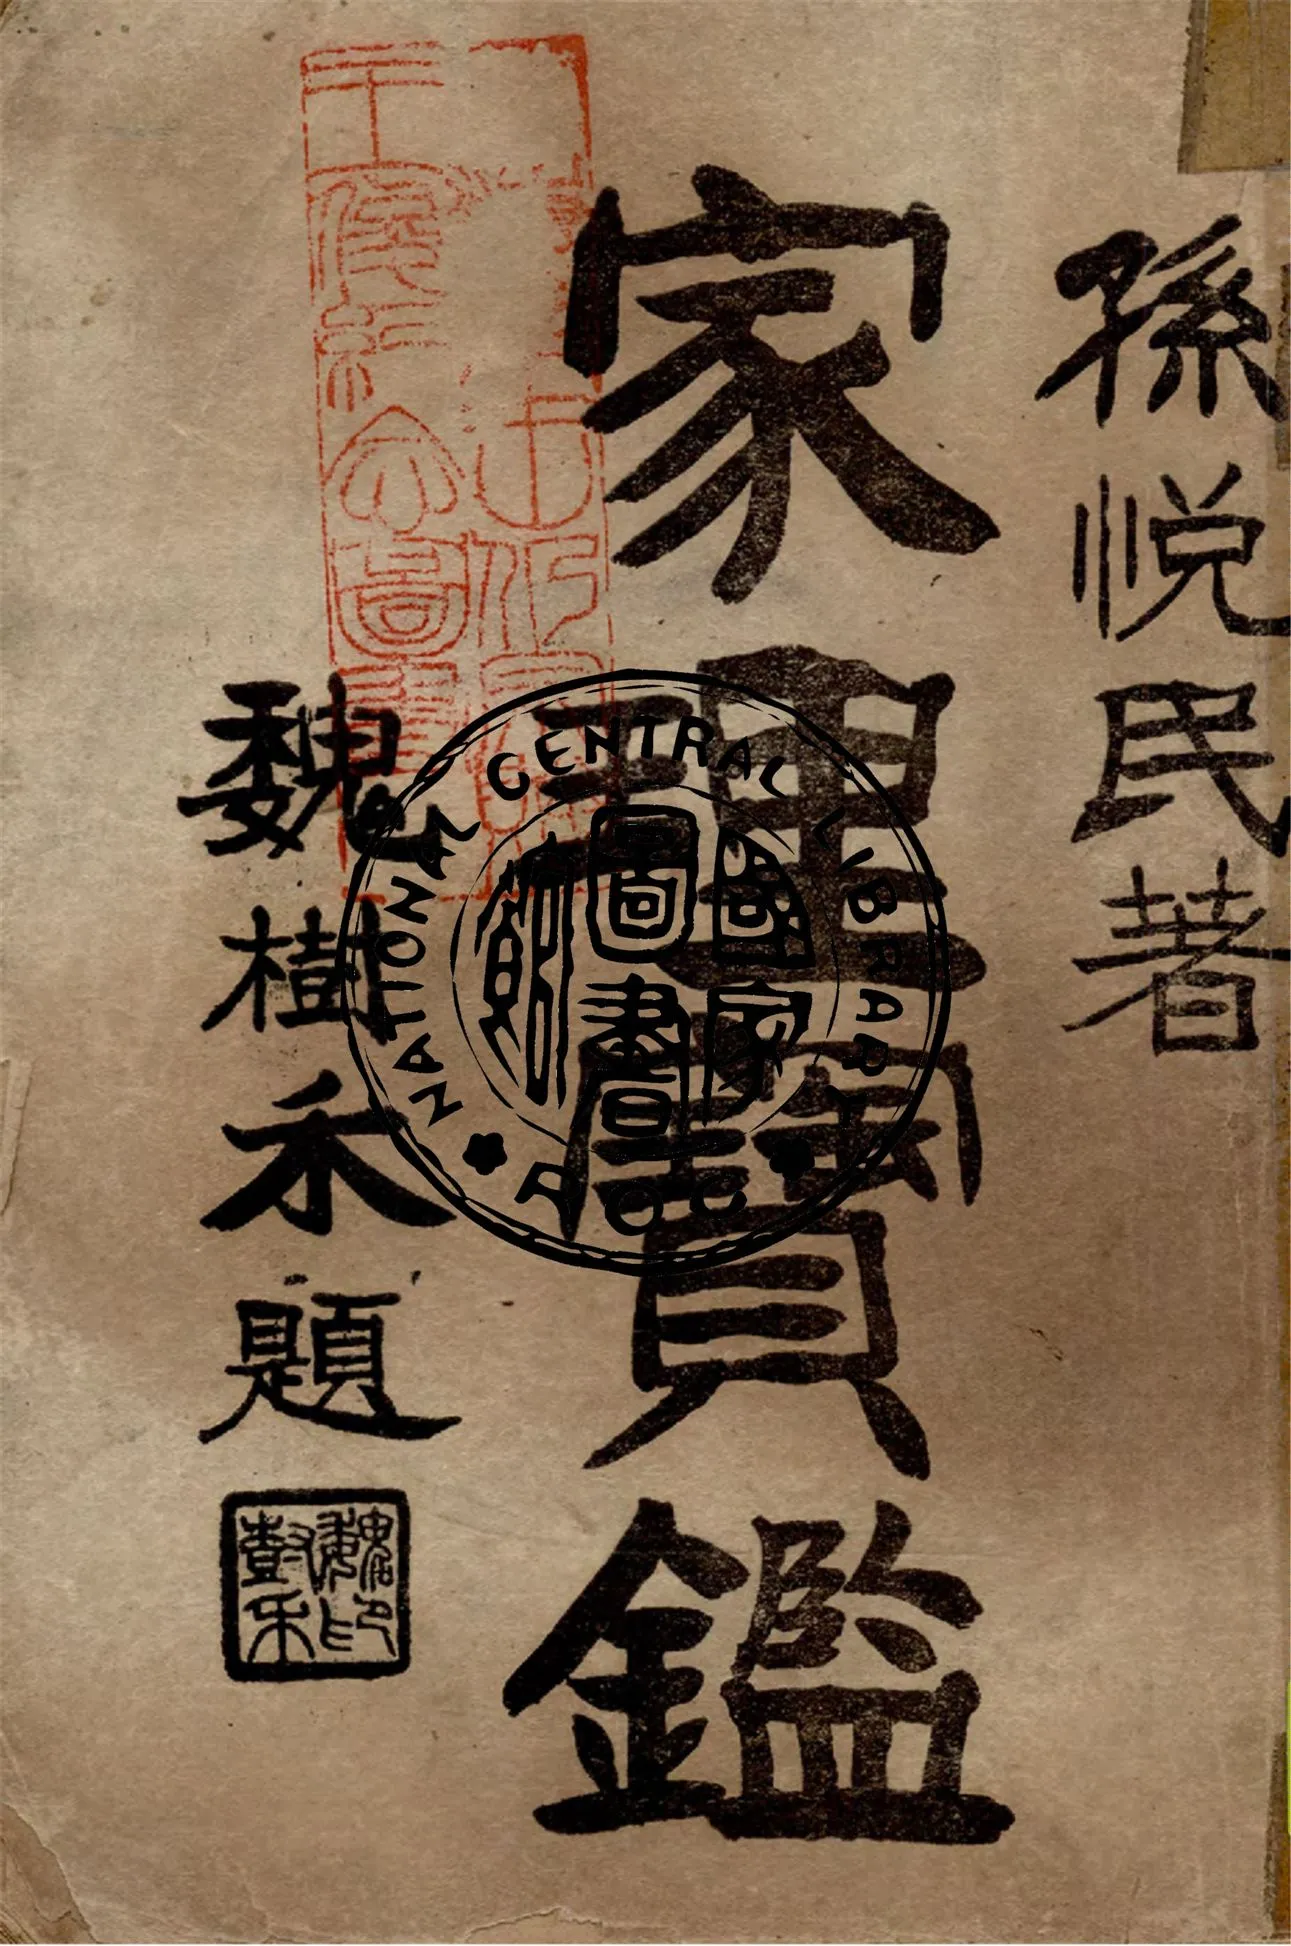 孫悅民著
家理寶鑑
魏樹禾題
NATIONAL CENTRAL LIBRARY
國家
圖書
館
ROC